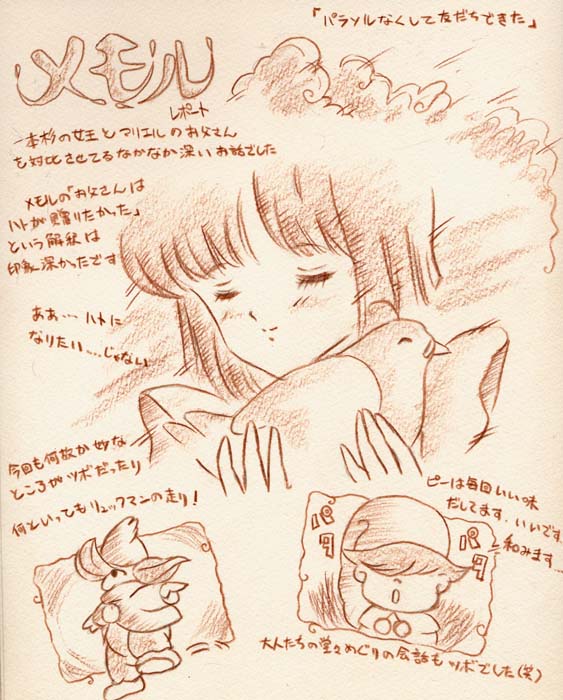 「パラソルなくして友だちできた」
メモル
レポート
一本杉の女王とマリエルのお父さん
を対比させてるなかなか深いお話でした
メモルの「お父さんは
ハトが贈りたかった」
という解釈は
印象深かったです
ああ…ハトに
なりたい…じゃない
今回も何故か妙な
ところがツボだったり
何といってもリュックマンの走り!
ピーは毎回いい味
だしてます。いいです。
和みます…
パタ
パタ
大人たちの堂々めぐりの会話もツボでした(笑)